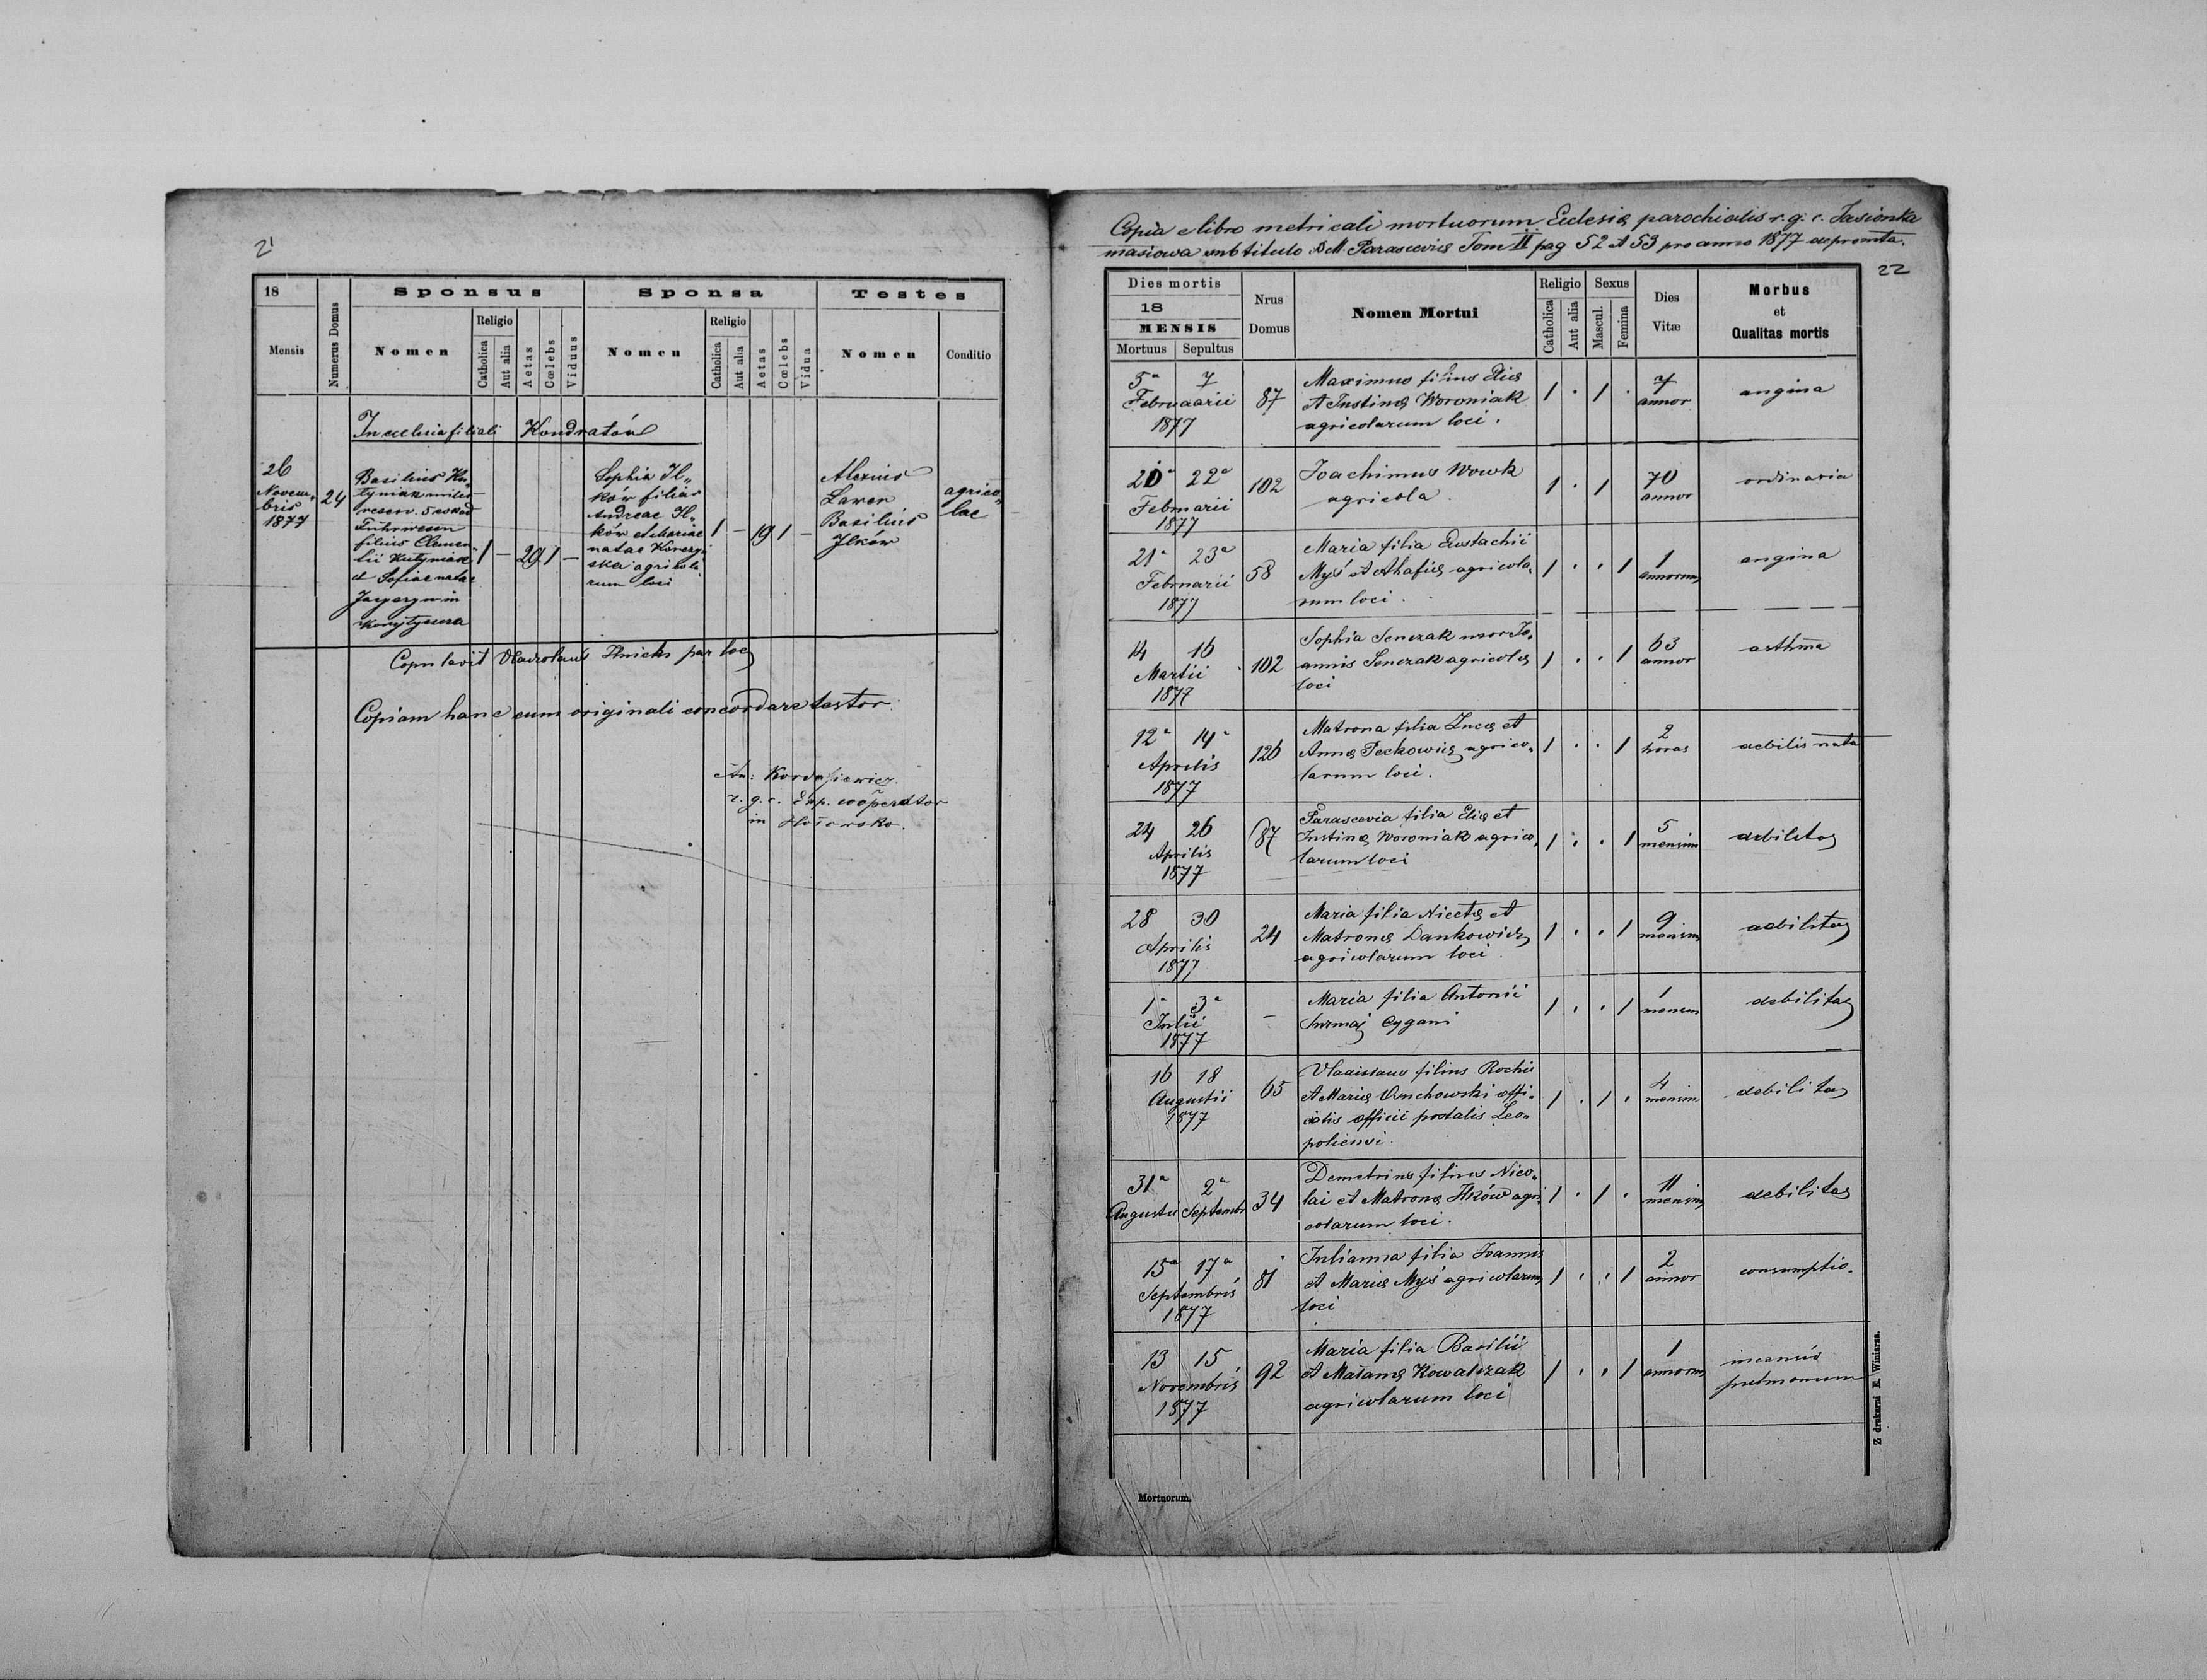 21
18
Mensis
Numerus Domus
Sponsus
Nomen
Religio
Catholica
Aut alia
Aetas
Cœlebs
Viduus
Sponsa
Nomen
Religio
Catholica
Aut alia
Aetas
Cœlebs
Vidua
Testes
Nomen
Conditio
In ecclesia filiali Kondratów
26
Novem-
bris
1877
24
Basilius Hu-
tyniak miles
reserv. 5 eskad
Fuhrwesen
filius Clemen-
tii Hutyniak
et Sofiae natae
in
1 — 29 1 —
Sophia Il-
ków filia
Andreae Il-
ków et Mariae
natae
agricola-
rum loci
1 — 19 1 —
Alexius
Lawer
Basilius
Ilków
agrico-
lae
Copulavit Vladislaus Ilnicki par loci
Copiam hanc cum originali concordare testor.
An: Kordasiewicz
r. g. c. Exp. cooperator
in
Copia e libro metricali mortuorum Eclesiæ parochialis r. g. c. Jasionka
masiowa sub titulo S. M. Parasceviæ Tom II pag 52 et 53 pro anno 1877 depromta.
22
Dies mortis
18
MENSIS
Mortuus Sepultus
Nrus
Domus
Nomen Mortui
Religio
Catholica
Aut alia
Sexus
Mascul.
Femina
Dies
Vitæ
Morbus
et
Qualitas mortis
5a 7
Februaarii
1877
87
Maximus filius Eliæ
et Justinæ Woroniak
agricolarum loci.
1 . 1 .
7
annor
angina
20a 22a
Februarii
1877
102
Joachimus Wowk
agricola.
1 . 1
70
annor
ordinaria
21a 23a
Februarii
1877
58
Maria filia Eustachii
Myś et Ahafiæ agricola-
rum loci.
1 . . 1
1
annorum
angina
14 16
Martii
1877
102
Sophia Senczak uxor Jo-
annis Senczak agricolæ
loci
1 . . 1
63
annor
asthma
12a 14a
Aprilis
1877
126
Matrona filia Lucæ et
Annæ Peckowicz agrico-
larum loci.
1 . . 1
2
horas
debilis nata
24 26
Aprilis
1877
87
Parascevia filia Eliæ et
Justinæ Woroniak agrico-
larum loci
1 . . 1
5
mensium
debilitas
28 30
Aprilis
1877
24
Maria filia Nicetæ et
Matronæ Dankowicz
agricolarum loci.
1 . . 1
9
mensium
debilitas
1a 3a
Julii
1877
—
Maria filia Antonii
Surmaj Cygani
1 . . 1
1
mensem
debilitas
16 18
Augustii
1877
65
Vladislaus filius Rochii
et Mariæ Osuchowski offi-
cialis officii postalis Leo-
poliensi.
1 . 1 .
4
mensium
debilitas
31a 2a
Augustii Septembr
34
Demetrius filius Nico-
lai et Matronæ Ilków agri-
colarum loci.
1 . 1 .
11
mensium
debilitas
15a 17a
Septembris
1877
81
Julianna filia Joannis
et Mariæ Myś agricolarum
loci
1 . . 1
2
annor
consumptio.
13 15
Novembris
1877
92
Maria filia Basilii
et Kowalczak
agricolarum loci
1 . . 1
1
annorum
pulmonum
Mortuorum.
Z drukarni E. Winiarza.